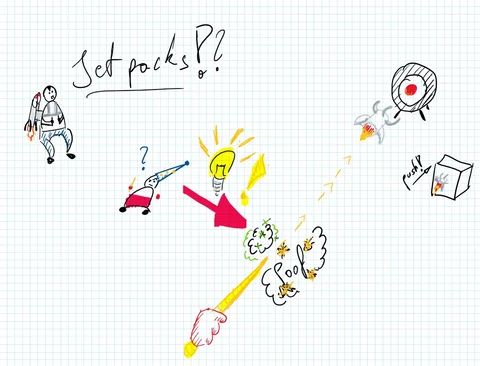 Jet packs?!?
?
push!
!
Poof